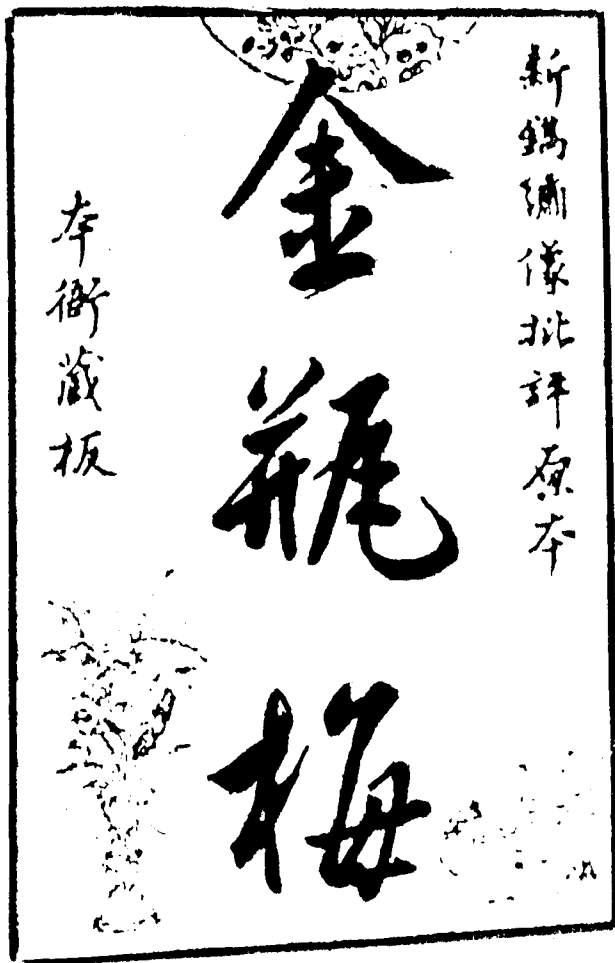 新鐫繡像批評原本
金瓶梅
本衙藏板